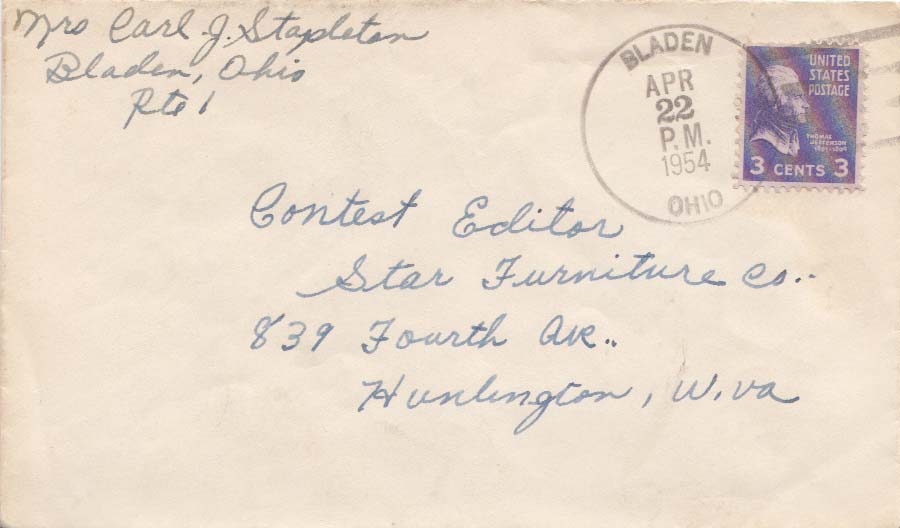 Mrs Carl J. Stapleton
Bladen, Ohio
Rte 1
BLADEN
APR
22
P.M.
1954
OHIO
UNITED
STATES
POSTAGE
THOMAS
JEFFERSON
1801-1809
3 CENTS 3
Contest Editor
Star Furniture Co..
839 Fourth Ave..
Huntington, W.Va